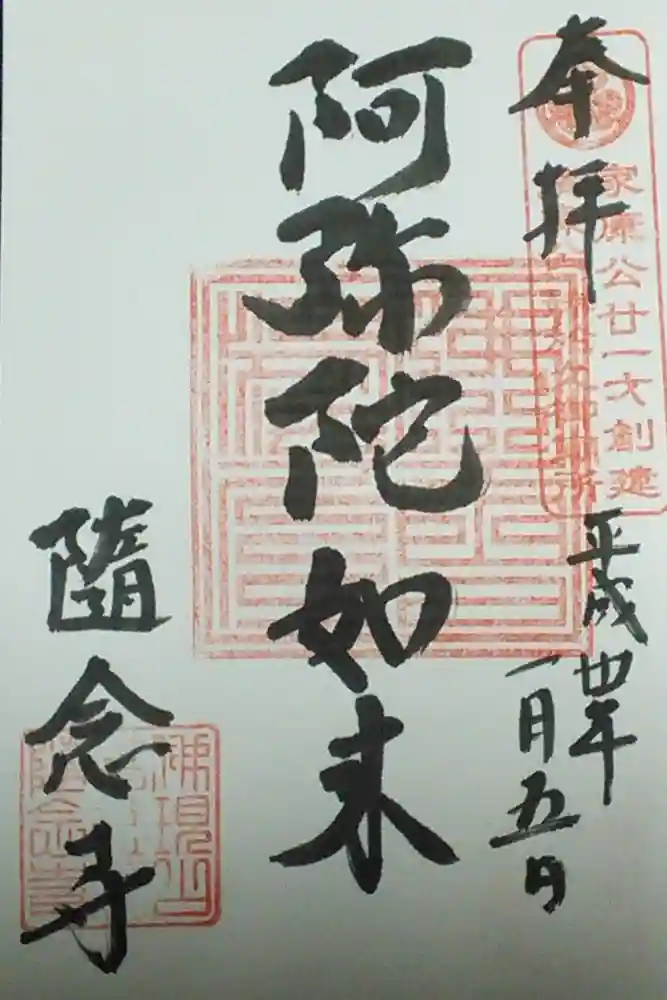 奉拝
家康公廿一才創建
平成丗年
一月五日
阿弥陀如来
隨念寺
佛現山